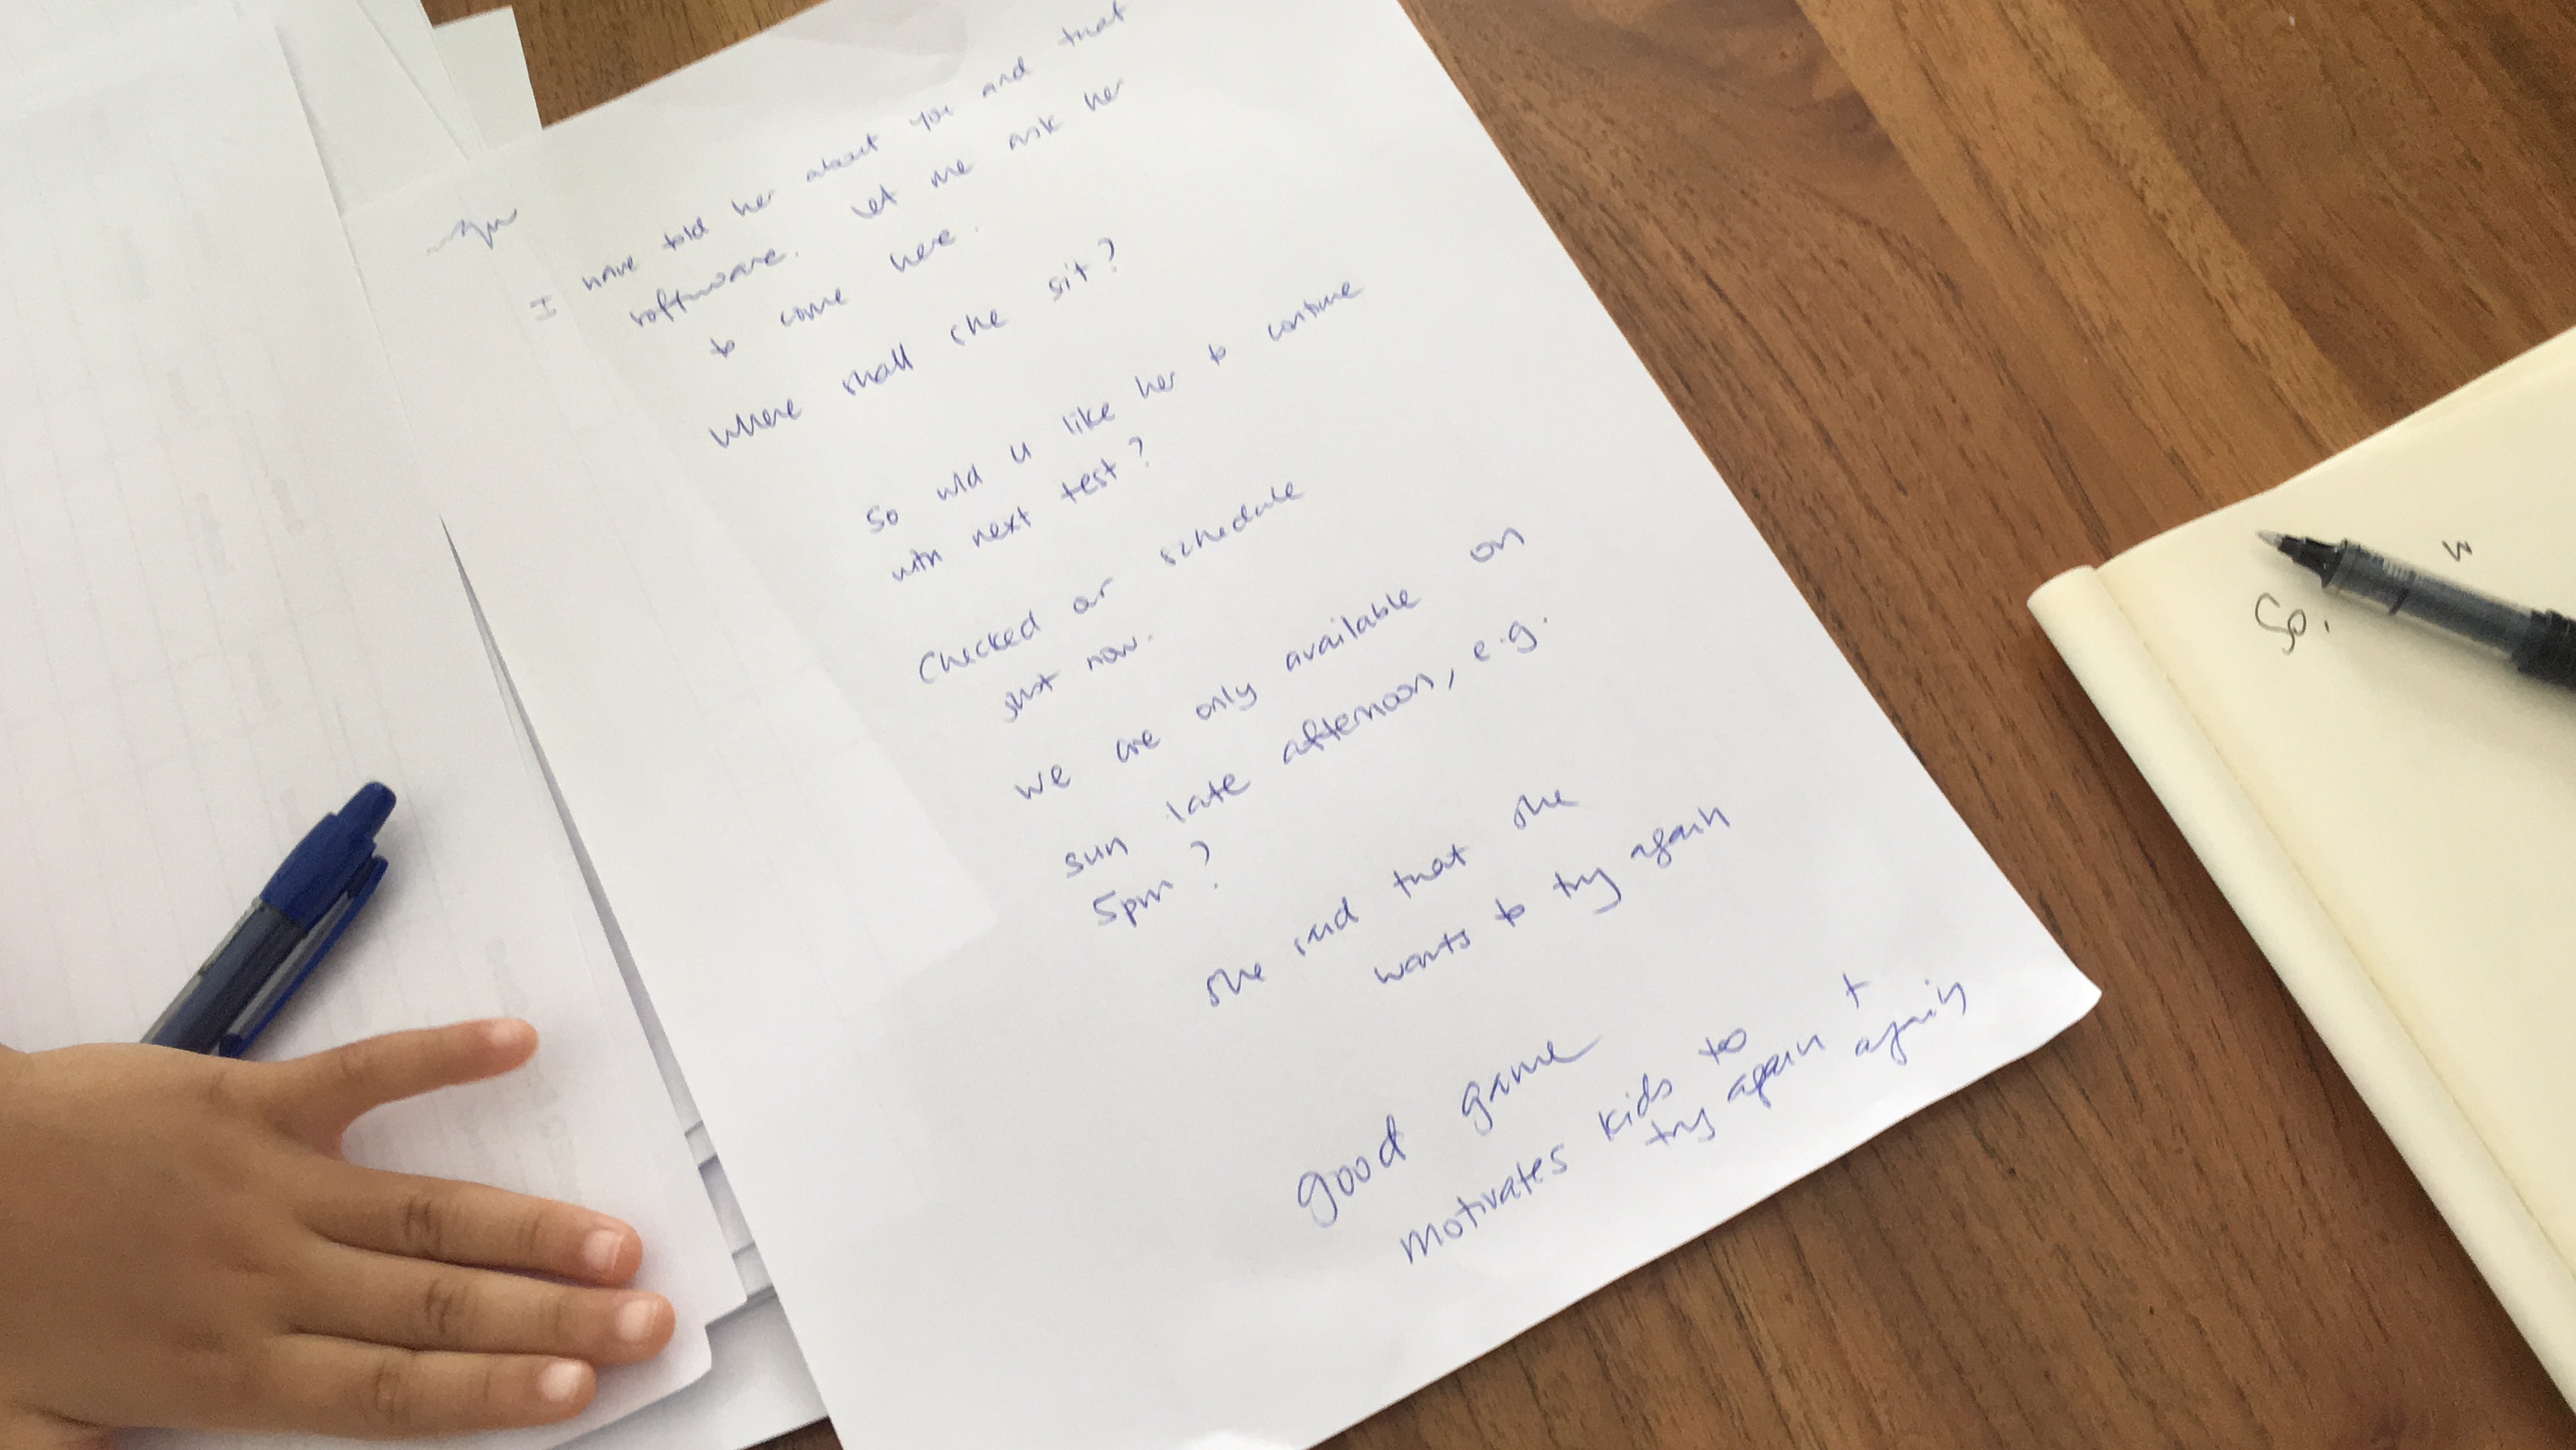 I have told her about you and that
software. Let me ask her
to come here.
Where shall she sit?
So wld u like her to continue
with next test?
Checked our schedule
just now.
we are only available on
sun late afternoon, e.g.
5pm?
she said that she
wants to try again
good game
motivates kids to
try again +
again
So,